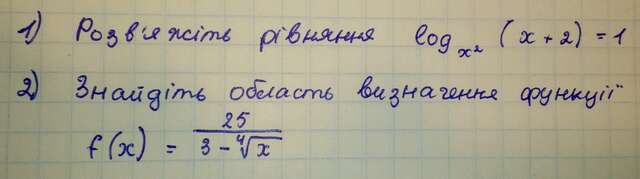 1) Розв'яжіть рівняння log_{x²} (x+2) = 1
2) Знайдіть область визначення функції
f(x) = 25 / (3 - ⁴√x)